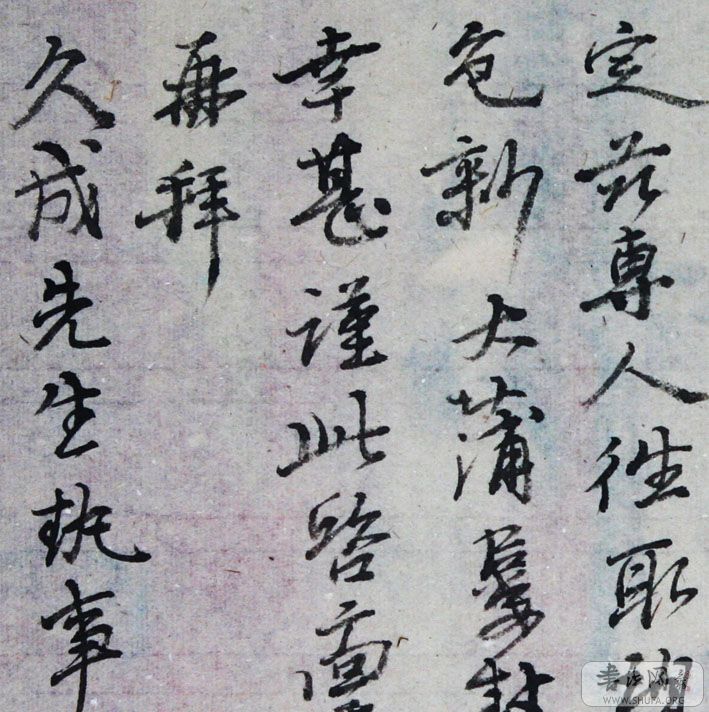 定茲專人往取
包新大蒲
幸甚謹此
再拜
久成先生執事
書法网
WWW.SHUFA.ORG